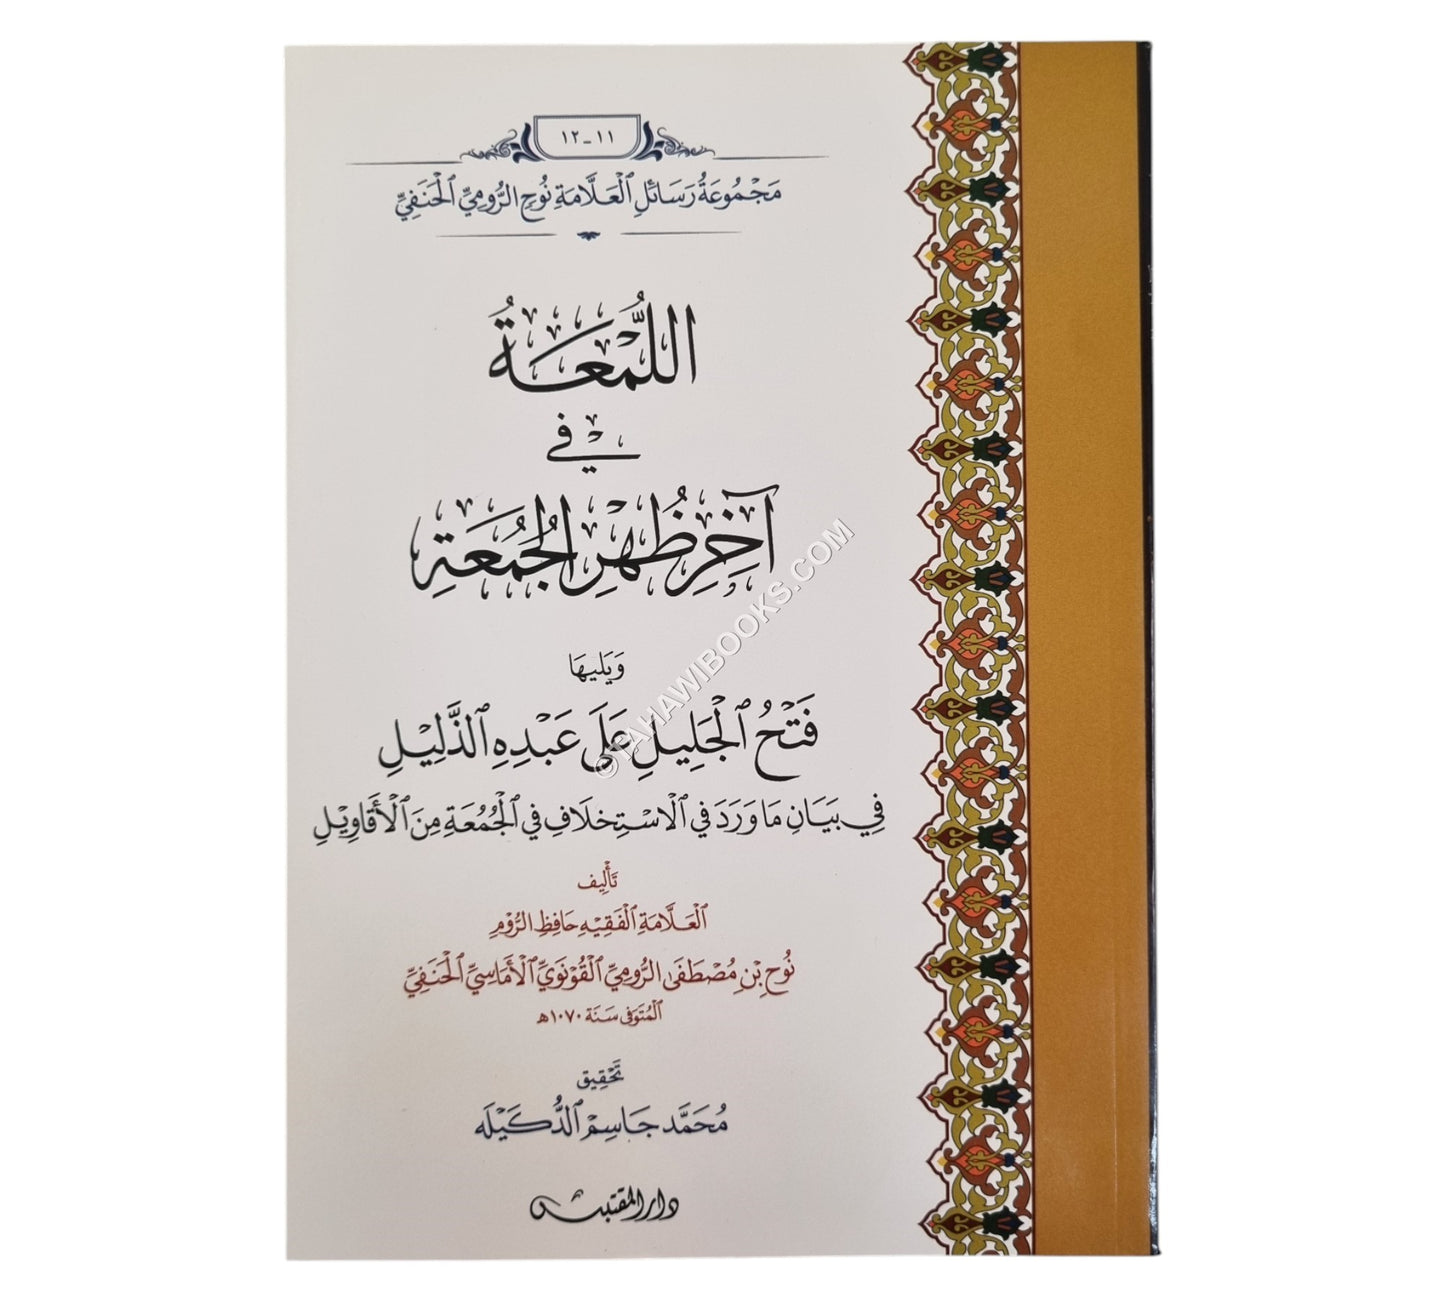 ١١-١٢
مَجْمُوعَةُ رَسَائِلِ الْعَلَّامَةِ نُوحٍ الرُّومِيِّ الْحَنَفِيِّ
اللُّمْعَةُ
فِي
آخِرِ ظُهْرِ الْجُمُعَةِ
وَيَلِيهَا
فَتْحُ الْجَلِيلِ عَلَى عَبْدِهِ الذَّلِيلِ
فِي بَيَانِ مَا وَرَدَ فِي الْاسْتِخْلَافِ فِي الْجُمُعَةِ مِنَ الْأَقَاوِيلِ
تَأْلِيف
الْعَلَّامَةِ الْفَقِيهِ حَافِظِ الرُّوْمِ
نُوحِ بْنِ مُصْطَفَى الرُّومِيِّ الْقُوْنَوِيِّ الْأَمَاسِيِّ الْحَنَفِيِّ
الْمُتَوَفَّى سَنَة ١٠٧٠هـ
تَحْقِيق
مُحَمَّد جَاسِمْ الدُّكَيْلَه
دار المقتبس
©TAHAWIBOOKS.COM